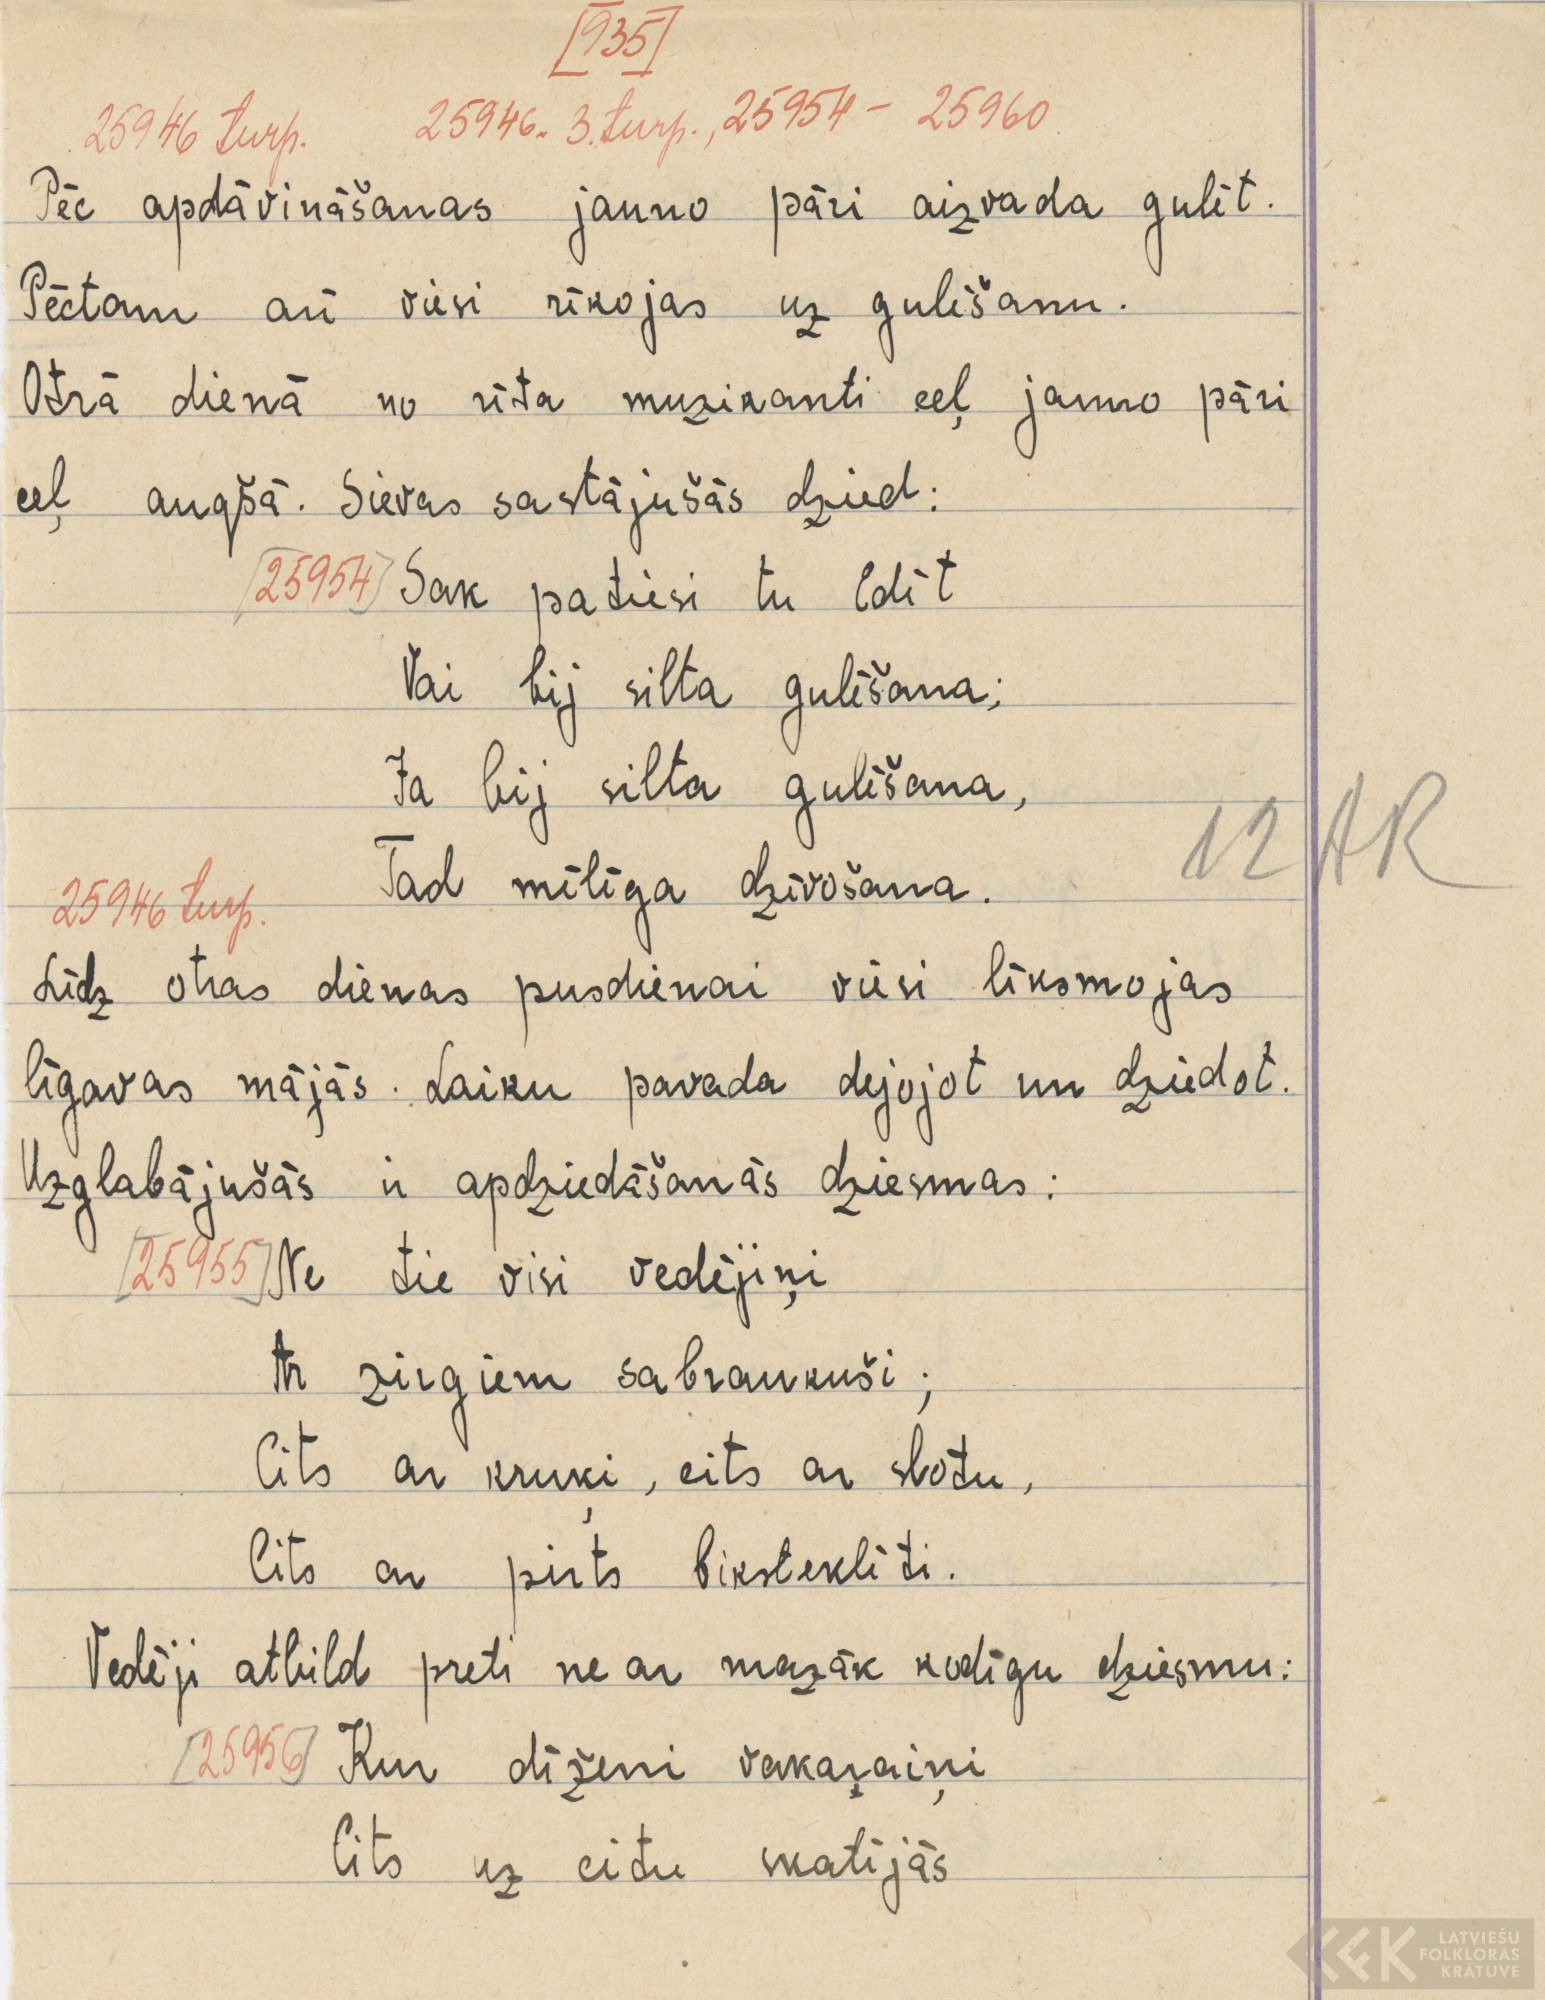 [935]
25946 turp. 25946. 3. turp., 25954 – 25960
Pēc apdāvināšanas jauno pāri aizvada gulēt.
Pēctam arī viesi rīkojas uz gulēšanu.
Otrā dienā no rīta muzikanti ceļ jauno pāri
ceļ augšā. Sievas sastājušās dzied:
[25954] Sak patiesi tu Edīt
Vai bij silta gulēšana;
Ja bij silta gulēšana,
Tad mīlīga dzīvošana.
12 AR
25946 turp.
Līdz otras dienas pusdienai viesi līksmojas
līgavas mājās. Laiku pavada dejojot un dziedot.
Uzglabājušās ir apdziedāšanās dziesmas:
[25955] Ne tie visi vedējiņi
Ar zirgiem sabraukuši;
Cits ar kruķi, cits ar slotu,
Cits ar pirts bikstekliti.
Vedēji atbild preti ne ar mazāk kodīgu dziesmu:
[25956] Kur dīženi vakaŗaiņi
Cits uz citu skatījās
LATVIEŠU
FOLKLORAS
KRĀTUVE